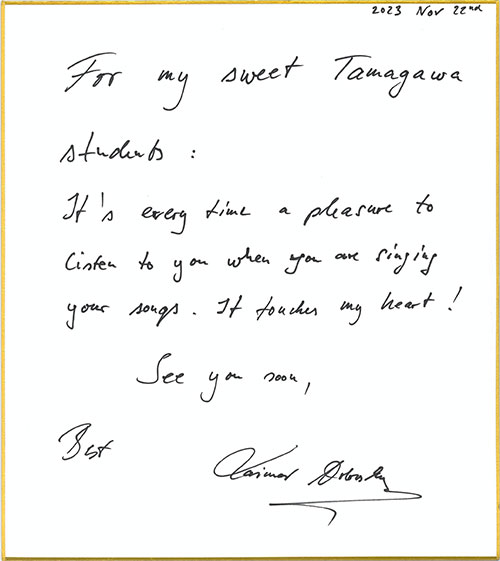 2023 Nov 22nd
For my sweet Tamagawa
students :
It's every time a pleasure to
listen to you when you are singing
your songs. It touches my heart!
See you soon,
Best